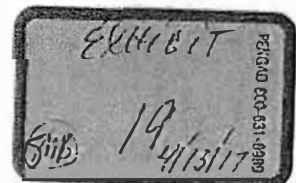 EXHIBIT
19
4/13/17
PENGAD 800-631-6989